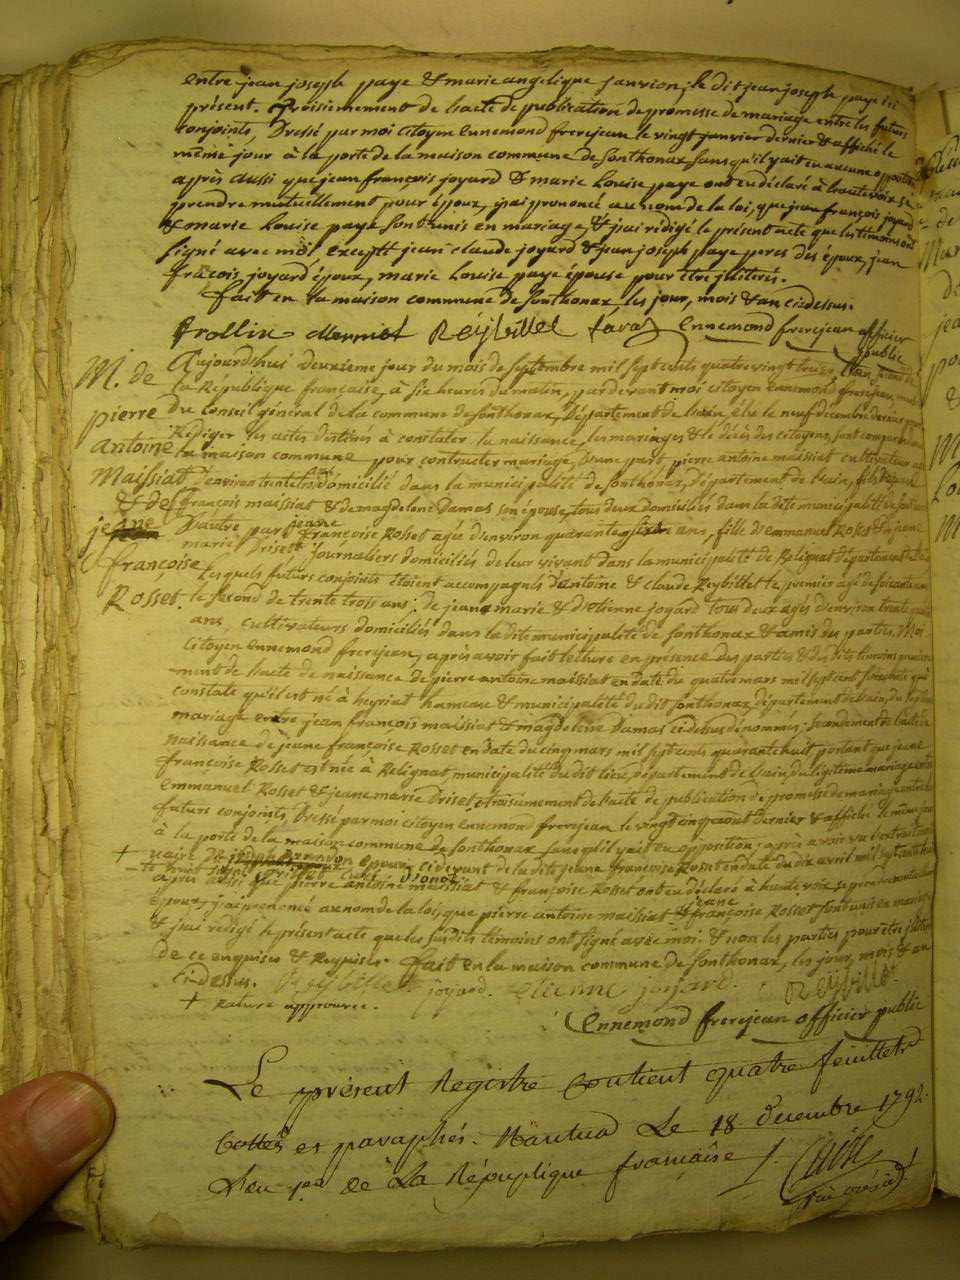 entre jean joseph paye & marie angelique janvion; le dit jean joseph paye ici
présent. troisiemement de l'acte de publication de promesse de mariage entre les futurs
conjoints, Dressé par moi citoyen ennemond frerejean le vingt janvier dernier & affiché le
même jour à la porte de la maison commune de sonthonax sans qu'il y ait eu aucune opposition
après aussi que jean françois joyard & marie Louise paye ont eu déclaré à haute voix se
prendre mutuellement pour époux, j'ai prononcé au nom de la loi, que jean françois joyard
& marie Louise paye sont unis en mariage, & j'ai rédigé le présent acte que les témoins ont
signé avec moi excepté jean claude joyard & jean joseph paye peres des époux, jean
françois joyard époux, marie Louise paye épouse pour être illiterés.
fait en la maison commune de sonthonax, les jour, mois & an ci dessus.
Reybillet ennemond frerejean officier
public
M. de
pierre
antoine
Maissiat
& de
jeane
françoise
Rosset.
Aujourdhui deuxième jour du mois de septembre mil sept cents quatre vingt treize, l'an second de
la Republique française, à six heures du matin, pardevant moi citoyen ennemond frerejean, membre
du Conseil général de la commune de sonthonax, Département de l'ain, élu le neuf decembre dernier pour
Rédiger les actes destinés à constater la naissance, les mariages & le décès des citoyens, sont comparus dans
la maison commune pour contracter mariage, D'une part pierre antoine maissiat cultivateur agé
D'environ trente trois ans domicilié dans la municipalité de sonthonax, département de l'ain, fils de jean
françois maissiat & de magdelene Damas son épouse, tous deux domiciliés dans la dite municipalité de sonthonax
D'autre part jeane françoise Rosset agée d'environ quarante six ans, fille d'emmanuel Rosset & de jeane
marie Driset journaliers domiciliés de leur vivant dans la municipalité de Relignat département de l'ain
Lesquels futurs conjoints étoient accompagnés d'antoine & claude Reybillet le premier agé de soixante ans
le second de trente trois ans; de jean marie & d'etienne joyard tous deux agés d'environ trente
ans, cultivateurs domiciliés dans la dite municipalité de sonthonax & amis des parties. Moi
citoyen ennemond frerejean, après avoir fait lecture en présence des parties & des dits témoins premiere
ment de l'acte de naissance de pierre antoine maissiat en date du quatre mars mil sept cent soixante qui
constate qu'il est né à heyriat hameau & municipalité du dit sonthonax, département de l'ain, du légitime
mariage entre jean françois maissiat & magdelene Damas ci dessus dénommés; secondement de l'acte de
naissance de jeane françoise Rosset en date du cinq mars mil sept cents quarante huit portant que jeane
françoise Rosset est née à Relignat, municipalité du dit lieu, département de l'ain, du légitime mariage entre
emmanuel Rosset & jeane marie Driset; troisiemement de l'acte de publication de promesse de mariage entre les
futurs conjoints, Dressé par moi citoyen ennemond frerejean le vingt cinq aout dernier & affiché le même jour
à la porte de la maison commune de sonthonax sans qu'il y ait eu opposition; après avoir vu l'extrait mor
+ tuaire de époux ci devant de la dite jeane françoise Rosset en date du dix avril mil sept cents
après aussi que pierre antoine maissiat & françoise Rosset ont eu déclaré à haute voix se prendre mutuellement
époux, j'ai prononcé au nom de la loi, que pierre antoine maissiat & jeane françoise Rosset sont unis en mariage
& j'ai redigé le présent acte que les susdits témoins ont signé avec moi & non les parties pour être illiterées
de ce enquises & Requises. fait en la maison commune de sonthonax, les jour, mois & an
ci dessus. Reybillet joyard. etienne joyard. Reybillet.
+ rature approuvée.
Ennemond frerejean officier public
Le présent Registre contient quatre feuillets
Cottés et paraphés. Nantua Le 18 decembre 1792.
L'an 1er de La République française